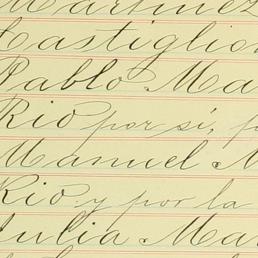 Martinez
Castiglio
Pablo Ma
Rio por sí, p
Manuel M
Rio y por la
Julia Mar